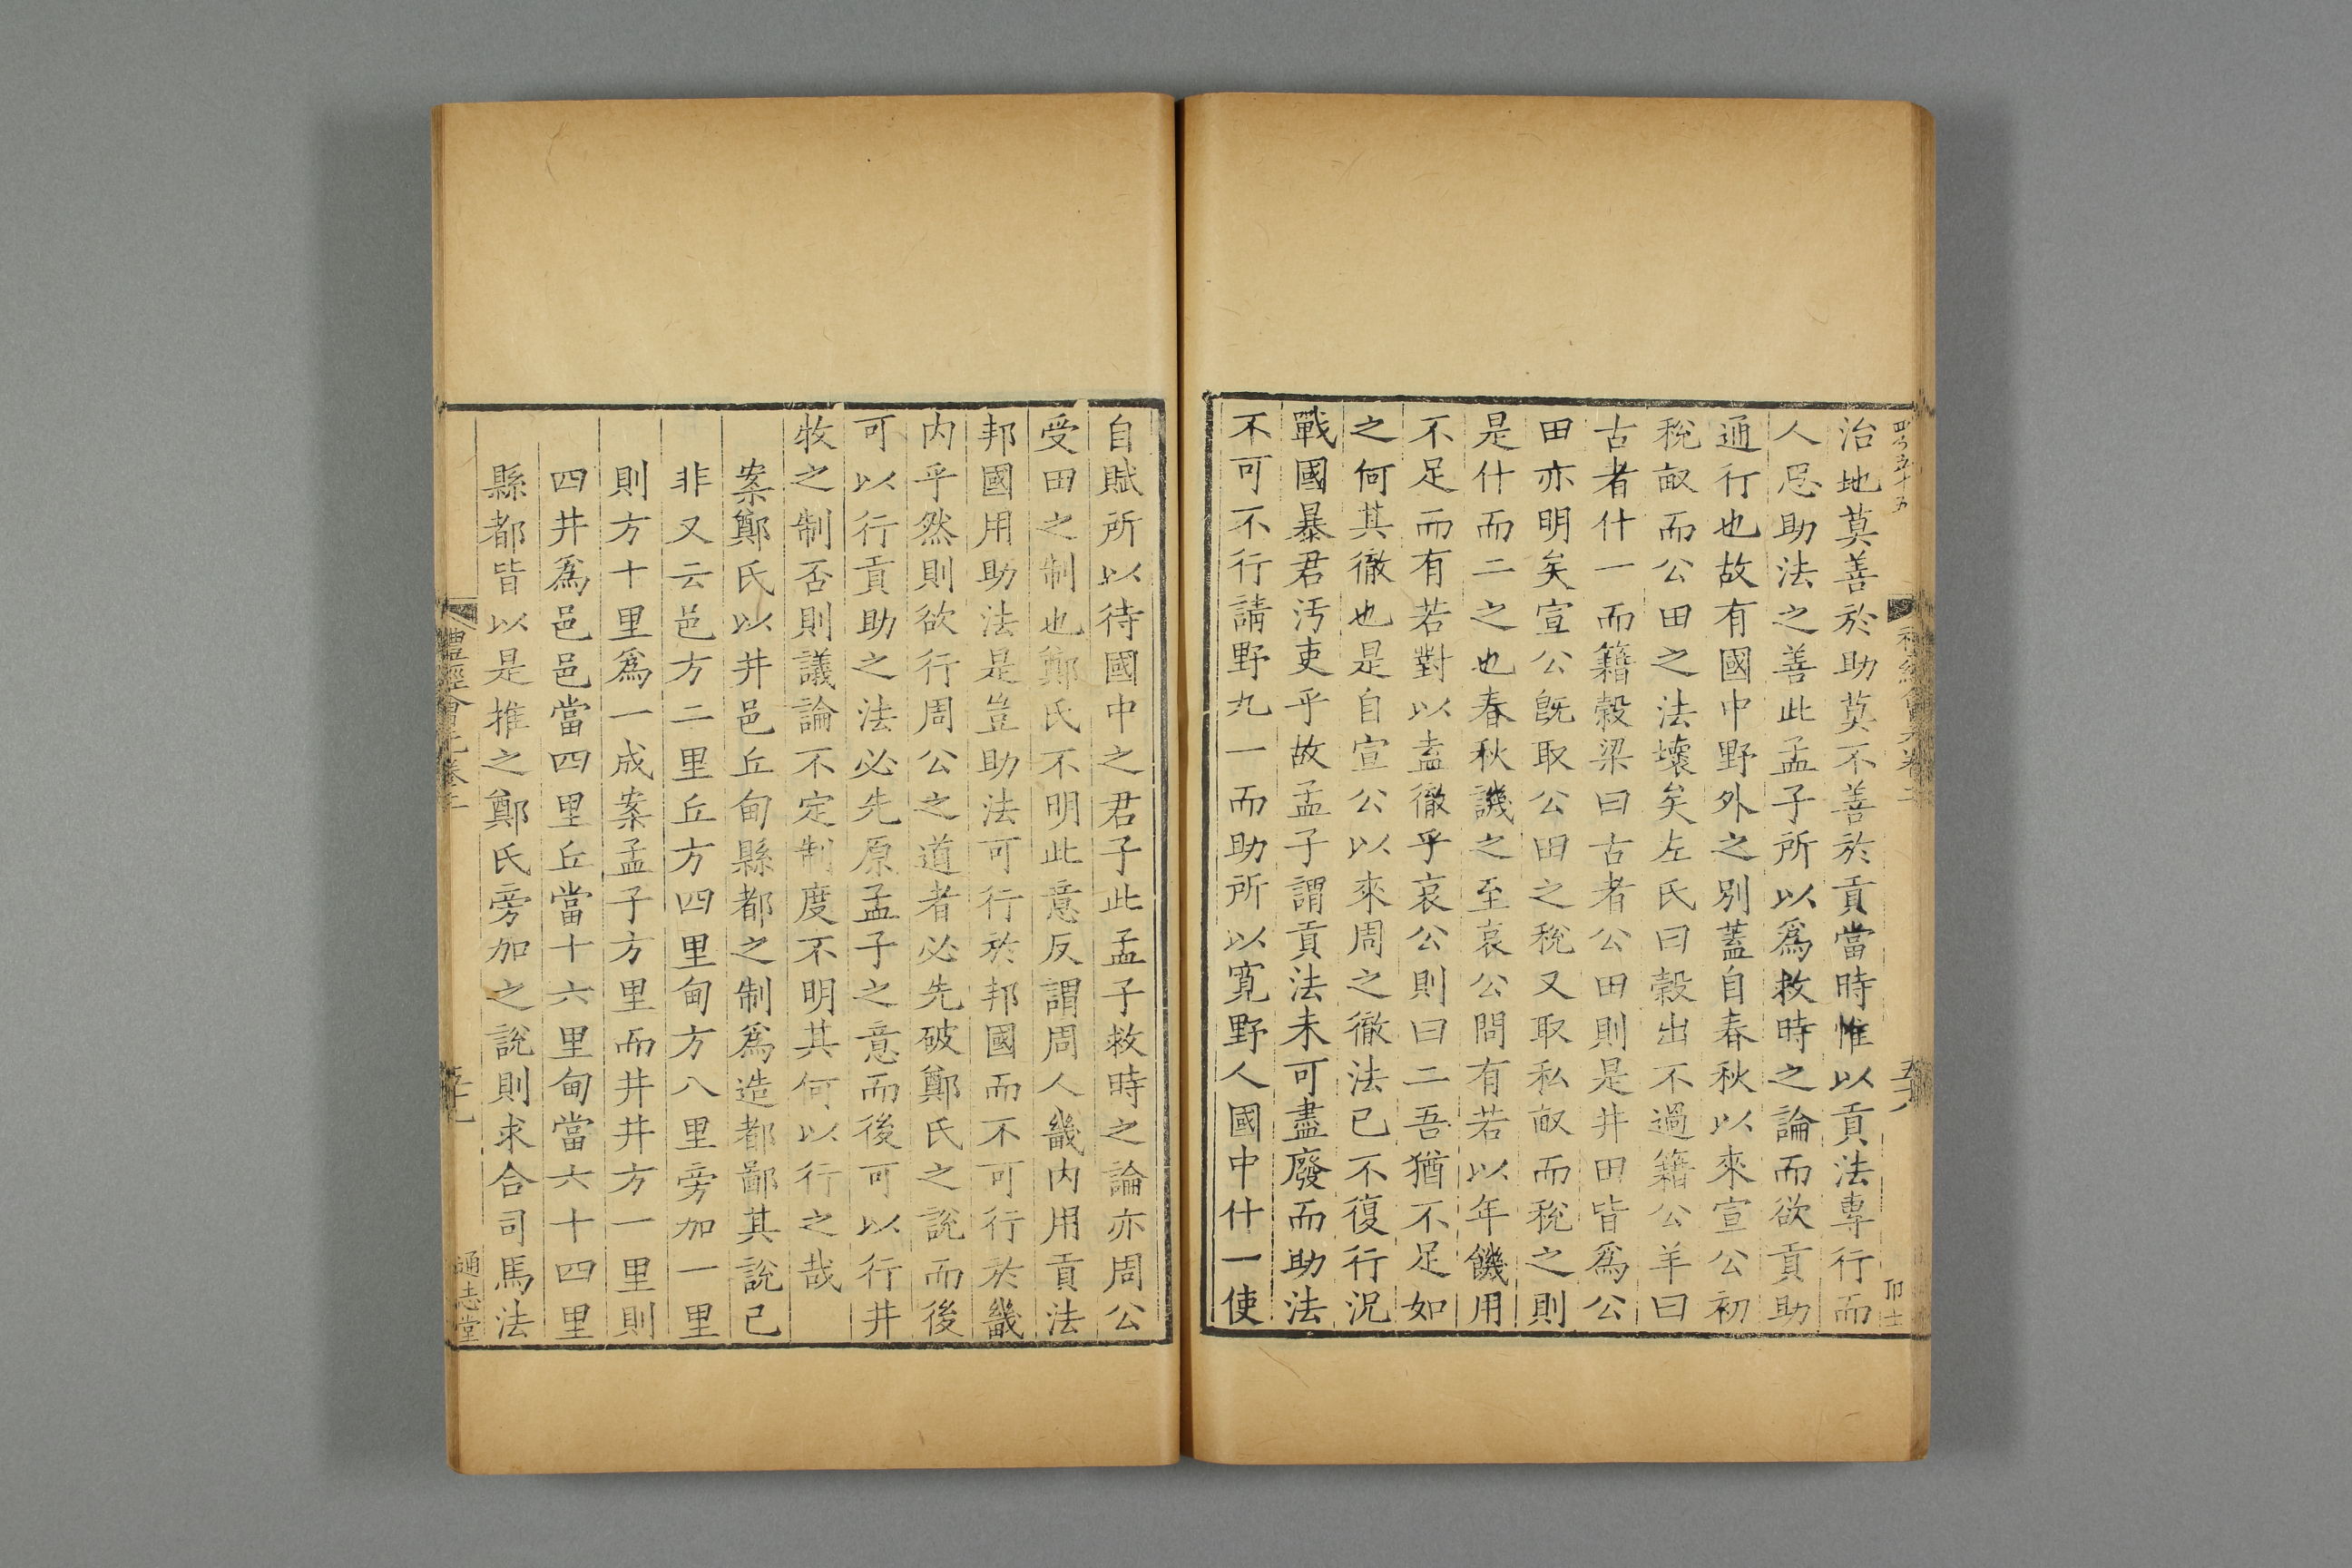 治地莫善於助莫不善於貢當時惟以貢法專行而
人忌助法之善此孟子所以爲救時之論而欲貢助
通行也故有國中野外之別蓋自春秋以來宣公初
稅畝而公田之法壞矣左氏曰榖出不過籍公羊曰
古者什一而籍榖梁曰古者公田則是井田皆爲公
田亦明矣宣公旣取公田之稅又取私畝而稅之則
是什而二之也春秋譏之至哀公問有若以年饑用
不足而有若對以盍徹乎哀公則曰二吾猶不足如
之何其徹也是自宣公以來周之徹法已不復行況
戰國暴君汚吏乎故孟子謂貢法未可盡廢而助法
不可不行請野九一而助所以寛野人國中什一使
自賦所以待國中之君子此孟子救時之論亦周公
受田之制也鄭氏不明此意反謂周人畿内用貢法
邦國用助法是豈助法可行於邦國而不可行於畿
内乎然則欲行周公之道者必先破鄭氏之說而後
可以行貢助之法必先原孟子之意而後可以行井
牧之制否則議論不定制度不明其何以行之哉
案鄭氏以井邑丘甸縣都之制爲造都鄙其說已
非又云邑方二里丘方四里甸方八里旁加一里
則方十里爲一成案孟子方里而井井方一里則
四井爲邑邑當四里丘當十六里甸當六十四里
縣都皆以是推之鄭氏旁加之說則求合司馬法
禮經會元卷二
通志堂